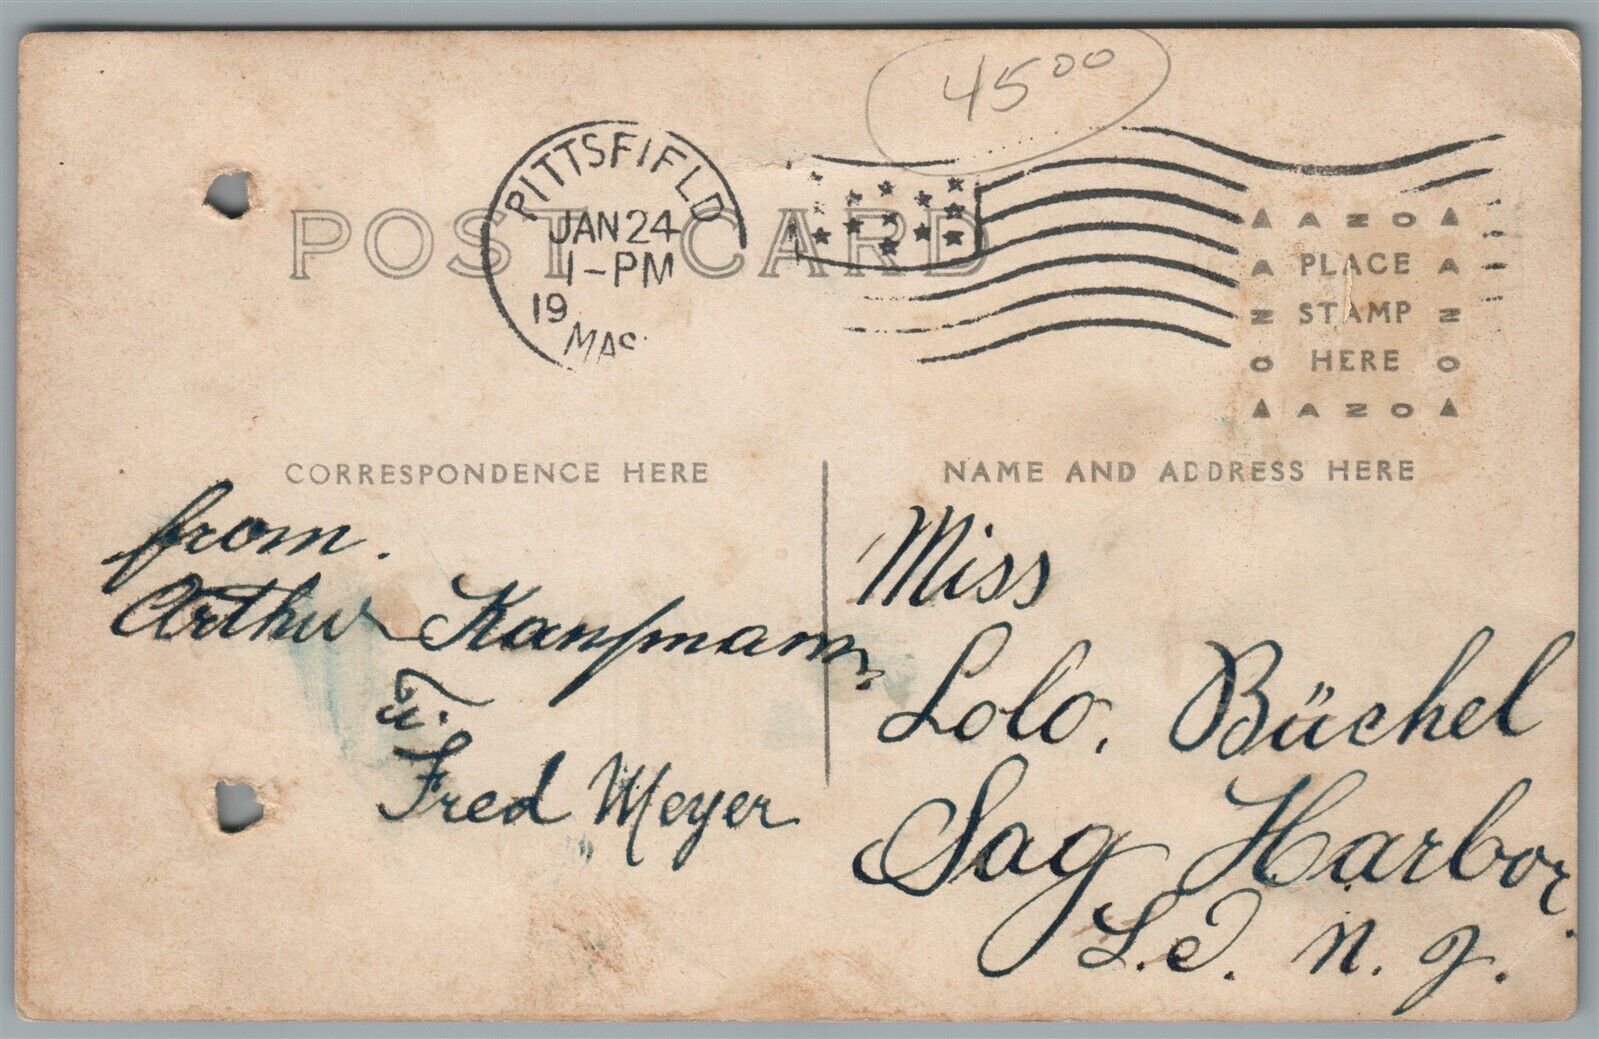 45 00
POST CARD
PITTSFIELD
JAN 24
1-PM
19
MAS.
AZO
PLACE
STAMP
HERE
AZO
CORRESPONDENCE HERE
NAME AND ADDRESS HERE
from.
Arthur Kaufmann
u.
Fred Meyer
Miss
Lolo. Büchel
Sag Harbor.
L. I. N. Y.